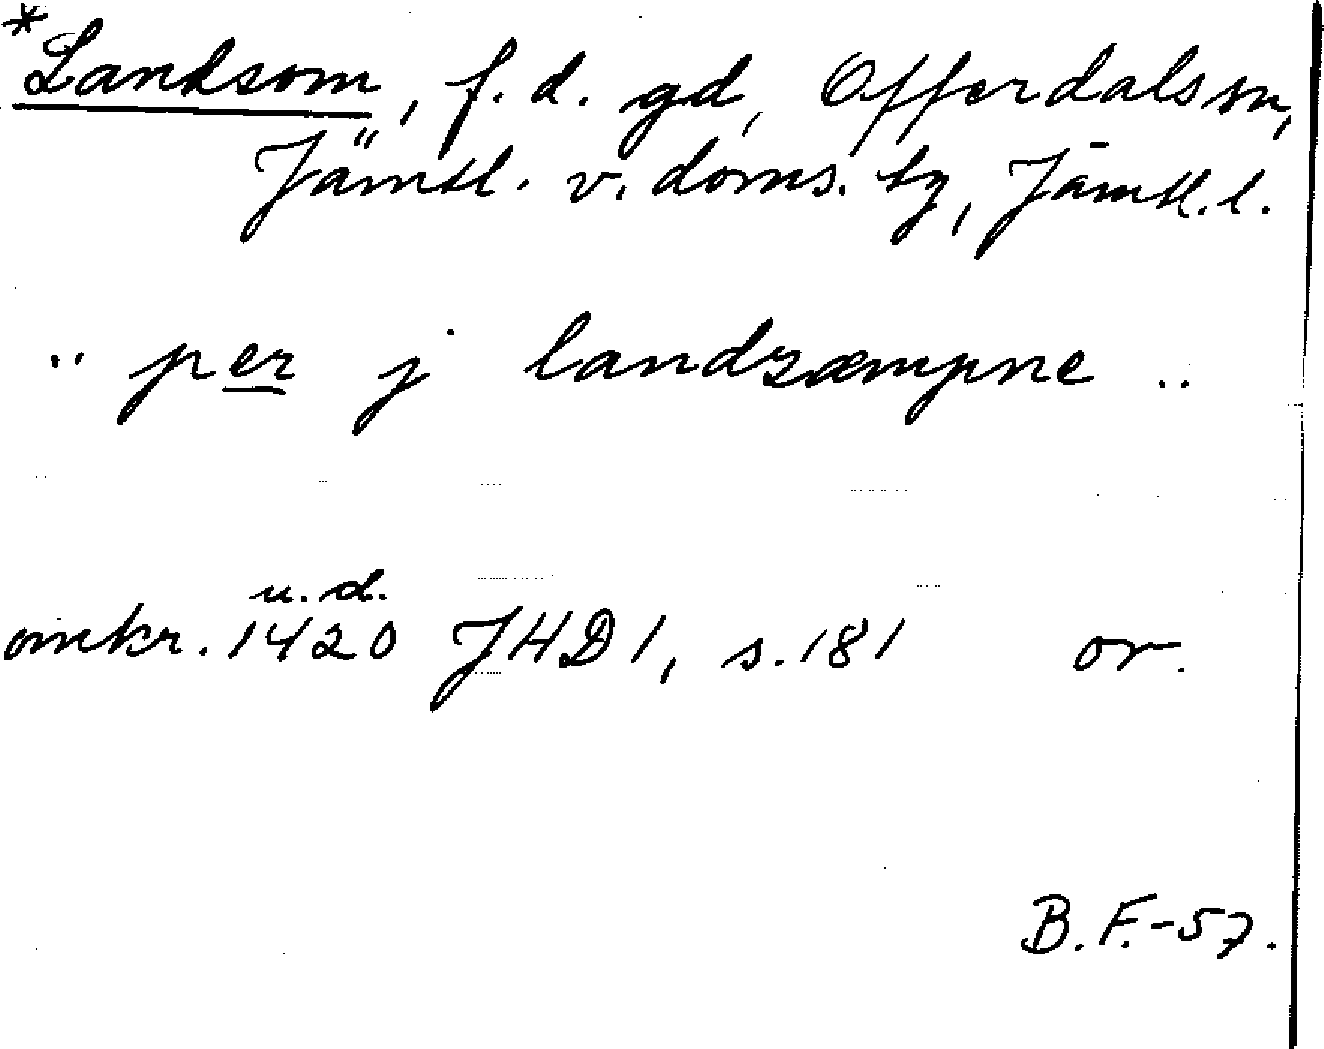 *Landsom, f.d. gd, Offerdals sn,
Jämtl. v. doms. tg, Jämtl. l.
.. per j landzæmpne ..
u. d.
omkr. 1420 JHD 1, s. 181 or.
B. F. -57.